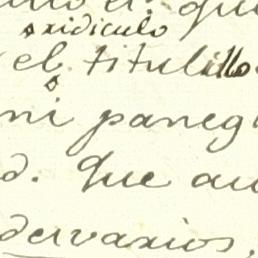 ridiculo
el titulillo
ni paneg
d. Que au
dervarios.